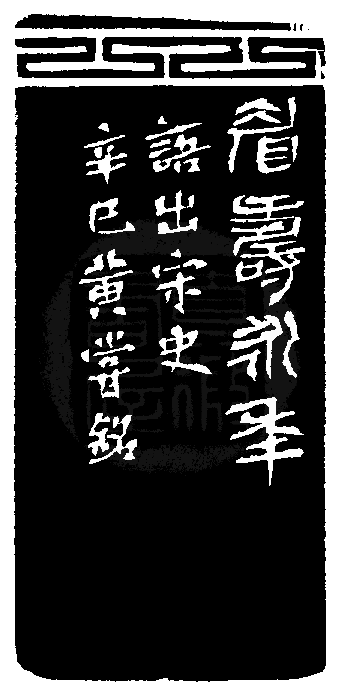 眉壽永年
語出宋史
辛巳黃嘗銘